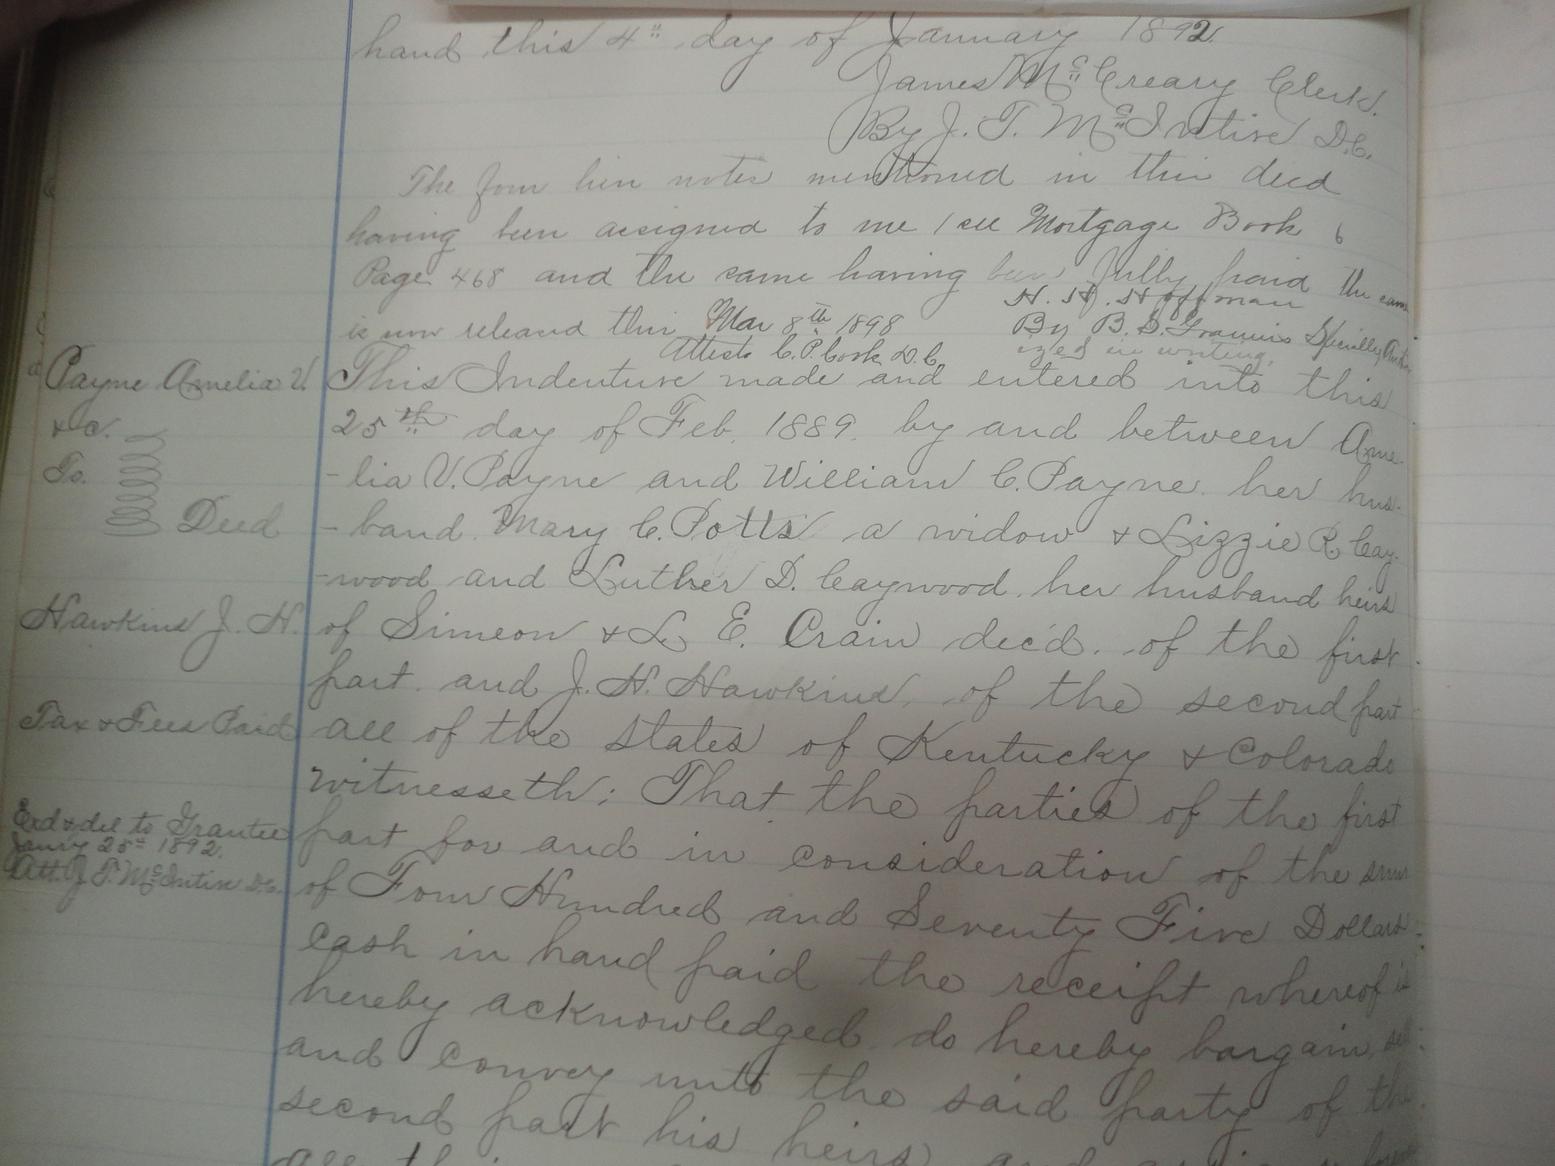 hand this 4" day of January 1892.
James Mc Creary Clerk.
By J. T. Mc Intire D.C.
The four lien notes mentioned in this deed
having been assigned to me / see Mortgage Book 6
Page 468 and the same having been fully paid the same
is now released this Mar 8th 1898
H. H. Hoffman
By B. S. Grannis Specially Author
ized in writing.
Attest C. P. Cook D.C.
Payne Amelia V.
& c.
To.
Deed
Hawkins J. H.
Tax & Fees Paid
Exd & del to Grantee
Jany 25" 1892.
Att. J. T. Mc Intire D.C.
This Indenture made and entered into this
25th day of Feb. 1889. by and between Ame-
-lia V. Payne and William C. Payne. her hus-
-band. Mary C. Potts a widow & Lizzie R. Cay-
-wood and Luther D. Caywood. her husband heirs
of Simeon & L. E. Crain dec'd. of the first
part. and J. H. Hawkins. of the second part
all of the States of Kentucky & Colorado
witnesseth; That the parties of the first
part for and in consideration of the sum
of Four Hundred and Seventy Five Dollars
cash in hand paid the receipt whereof is
hereby acknowledged do hereby bargain, sell
and convey unto the said party of the
second part his heirs and
all